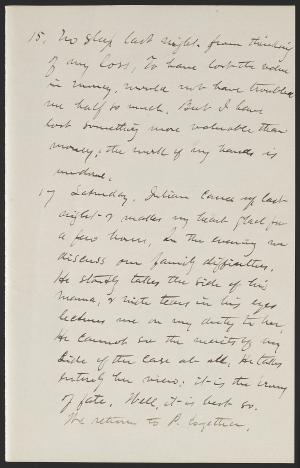 15. No sleep last night, from thinking
of my loss, To have lost the value
in money, would not have troubled
me half so much. But I have
lost something more valuable than
money, the work of my hands is
undone.
17 Saturday. Julian came up last
night & makes my heart glad for
a few hours, In the evening we
discuss our family difficulties.
He stoutly takes the side of his
Mama, & with tears in his eyes
lectures me on my duty to her,
He cannot see the merits of my
side of the case at all. He takes
entirely her view; it is the irony
of fate. Well, it is best so.
We return to P. together.